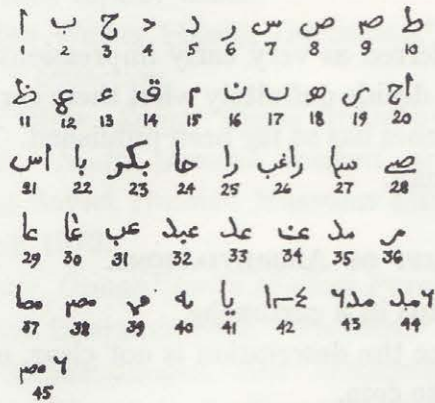 ا ب ج د ذ ر س ص صم ط
1 2 3 4 5 6 7 8 9 10
ظ ع ء ق م ن هو ى اج
11 12 13 14 15 16 17 18 19 20
اس با بكو حا را راغب سا صے
21 22 23 24 25 26 27 28
عا غا عب عبد عد مد مر
29 30 31 32 33 34 35 36
مصا مصر مه يا ١-٤ مد٦ ٦مد
37 38 39 40 41 42 43 44
٦ مصر
45